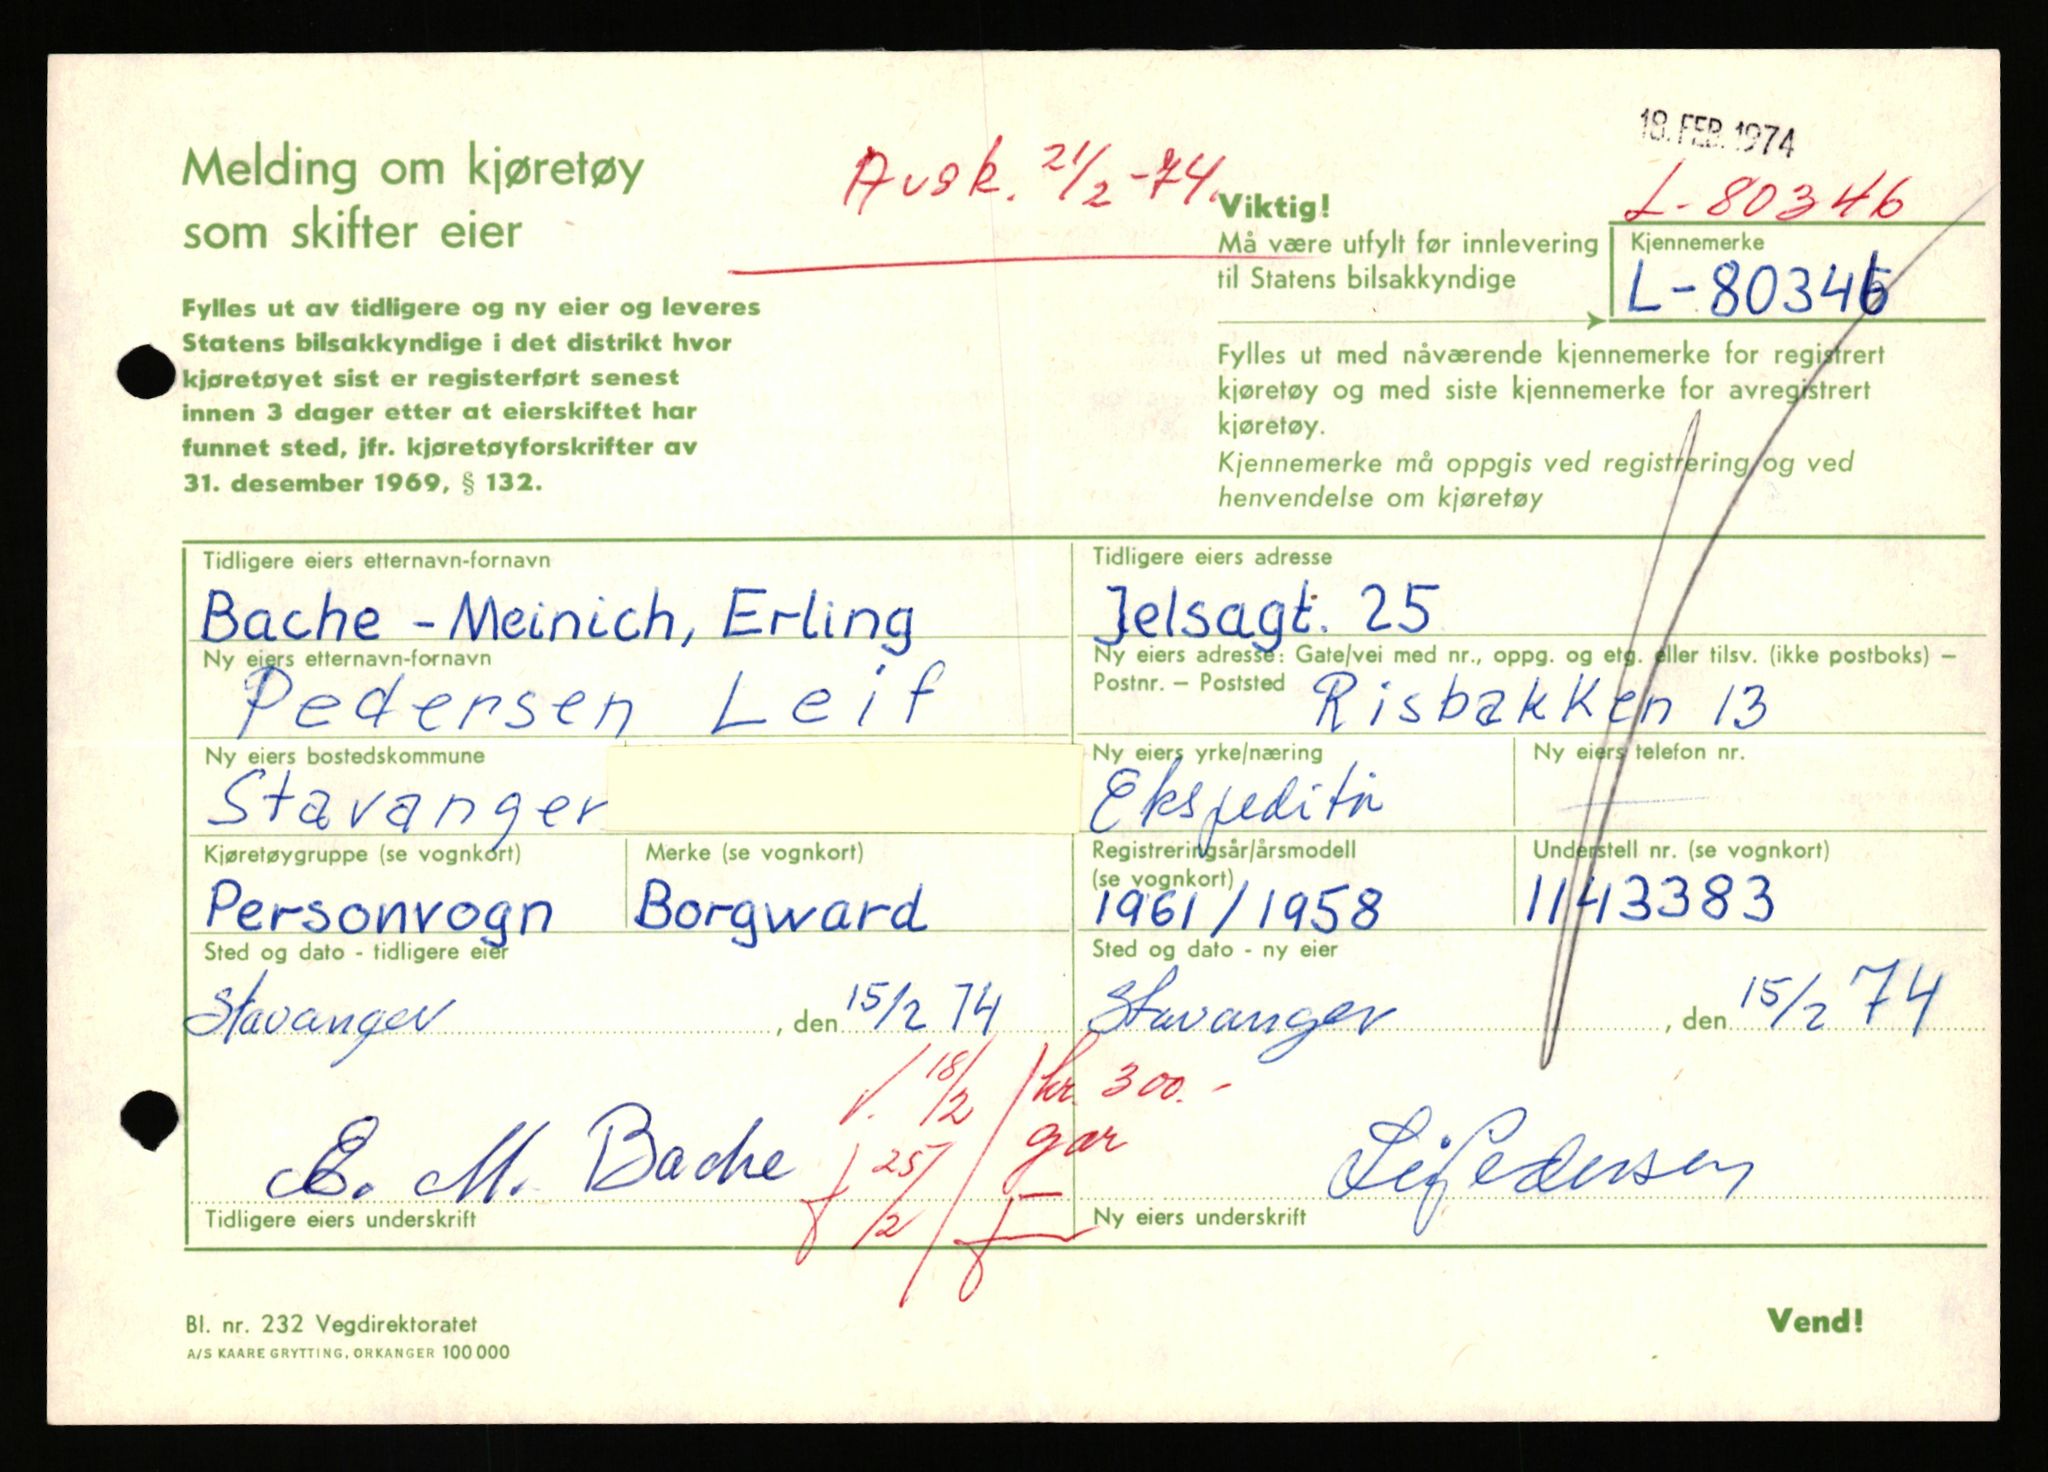 18. FEB. 1974
Melding om kjøretøy
som skifter eier
Avsk. 21/2-74.
L-80346
Viktig!
Må være utfylt før innlevering
til Statens bilsakkyndige
Kjennemerke
L-80346
Fylles ut av tidligere og ny eier og leveres
Statens bilsakkyndige i det distrikt hvor
kjøretøyet sist er registerført senest
innen 3 dager etter at eierskiftet har
funnet sted, jfr. kjøretøyforskrifter av
31. desember 1969, § 132.
Fylles ut med nåværende kjennemerke for registrert
kjøretøy og med siste kjennemerke for avregistrert
kjøretøy.
Kjennemerke må oppgis ved registrering og ved
henvendelse om kjøretøy
Tidligere eiers etternavn-fornavn
Bache - Meinich, Erling
Tidligere eiers adresse
Jelsagt. 25
Ny eiers etternavn-fornavn
Pedersen Leif
Ny eiers adresse: Gate/vei med nr., oppg. og etg. eller tilsv. (ikke postboks) –
Postnr. – Poststed Risbakken 13
Ny eiers bostedskommune
Stavanger
Ny eiers yrke/næring
Ekspeditør
Ny eiers telefon nr.
Kjøretøygruppe (se vognkort)
Personvogn
Merke (se vognkort)
Borgward
Registreringsår/årsmodell
(se vognkort)
1961/1958
Understell nr. (se vognkort)
1143383
Sted og dato - tidligere eier
Stavanger, den 15/2 74
Sted og dato - ny eier
Stavanger, den 15/2 74
18/2
kr. 300.-
gar
25/2
E. M. Bache
Leif Pedersen
Tidligere eiers underskrift
Ny eiers underskrift
Bl. nr. 232 Vegdirektoratet
A/S KAARE GRYTTING, ORKANGER 100 000
Vend!